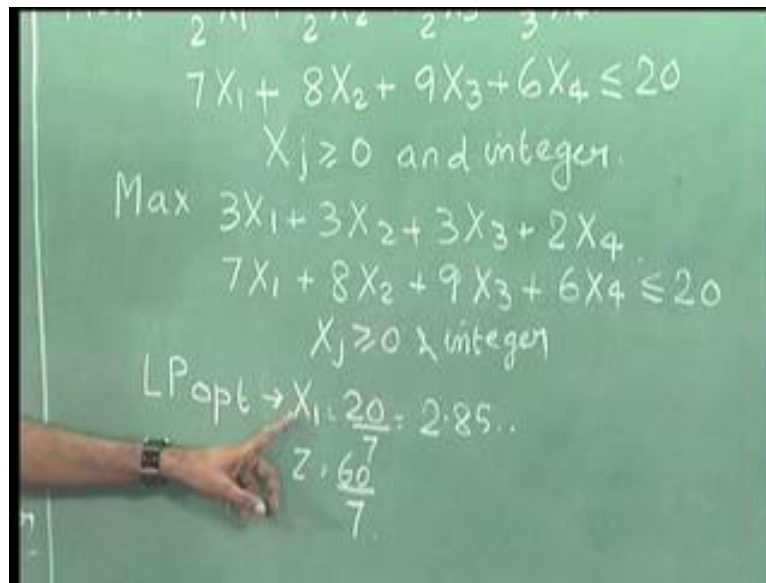 7X₁ + 8X₂ + 9X₃ + 6X₄ ≤ 20
Xj ≥ 0 and integer.
Max 3X₁ + 3X₂ + 3X₃ + 2X₄
7X₁ + 8X₂ + 9X₃ + 6X₄ ≤ 20
Xj ≥ 0 & integer
LP opt → X₁ = 20/7 = 2.85..
Z = 60/7